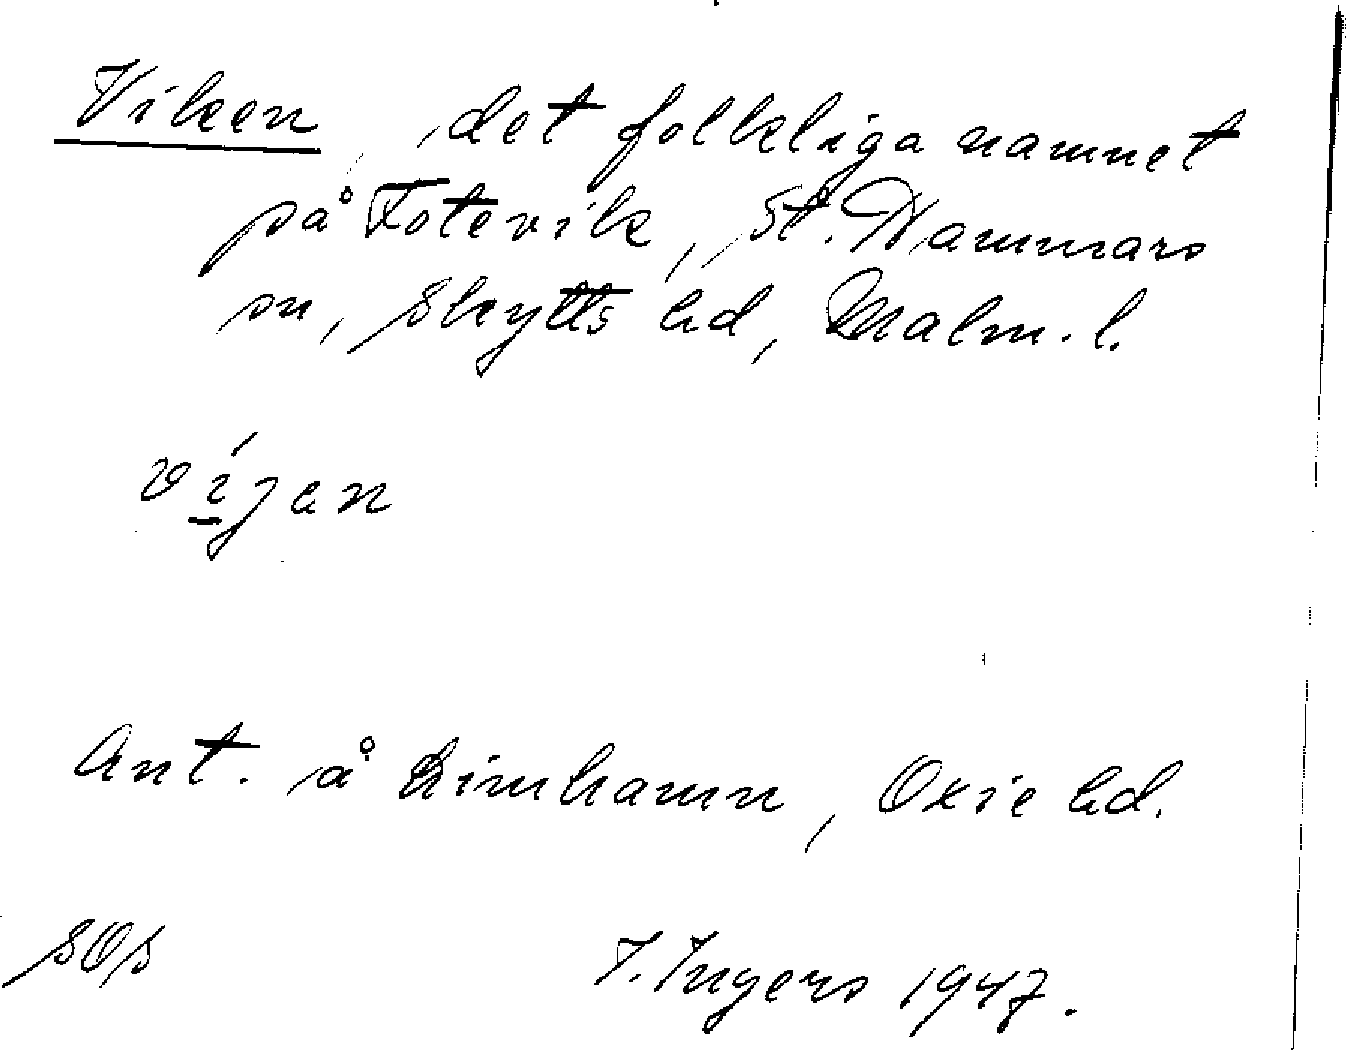 Viken, det folkliga namnet
på Fotevik, St. Hammars
sn, Skytts hd, Malm. l.
víjen
Ant. å Limhamn, Oxie hd.
SOS I. Ingers 1947.